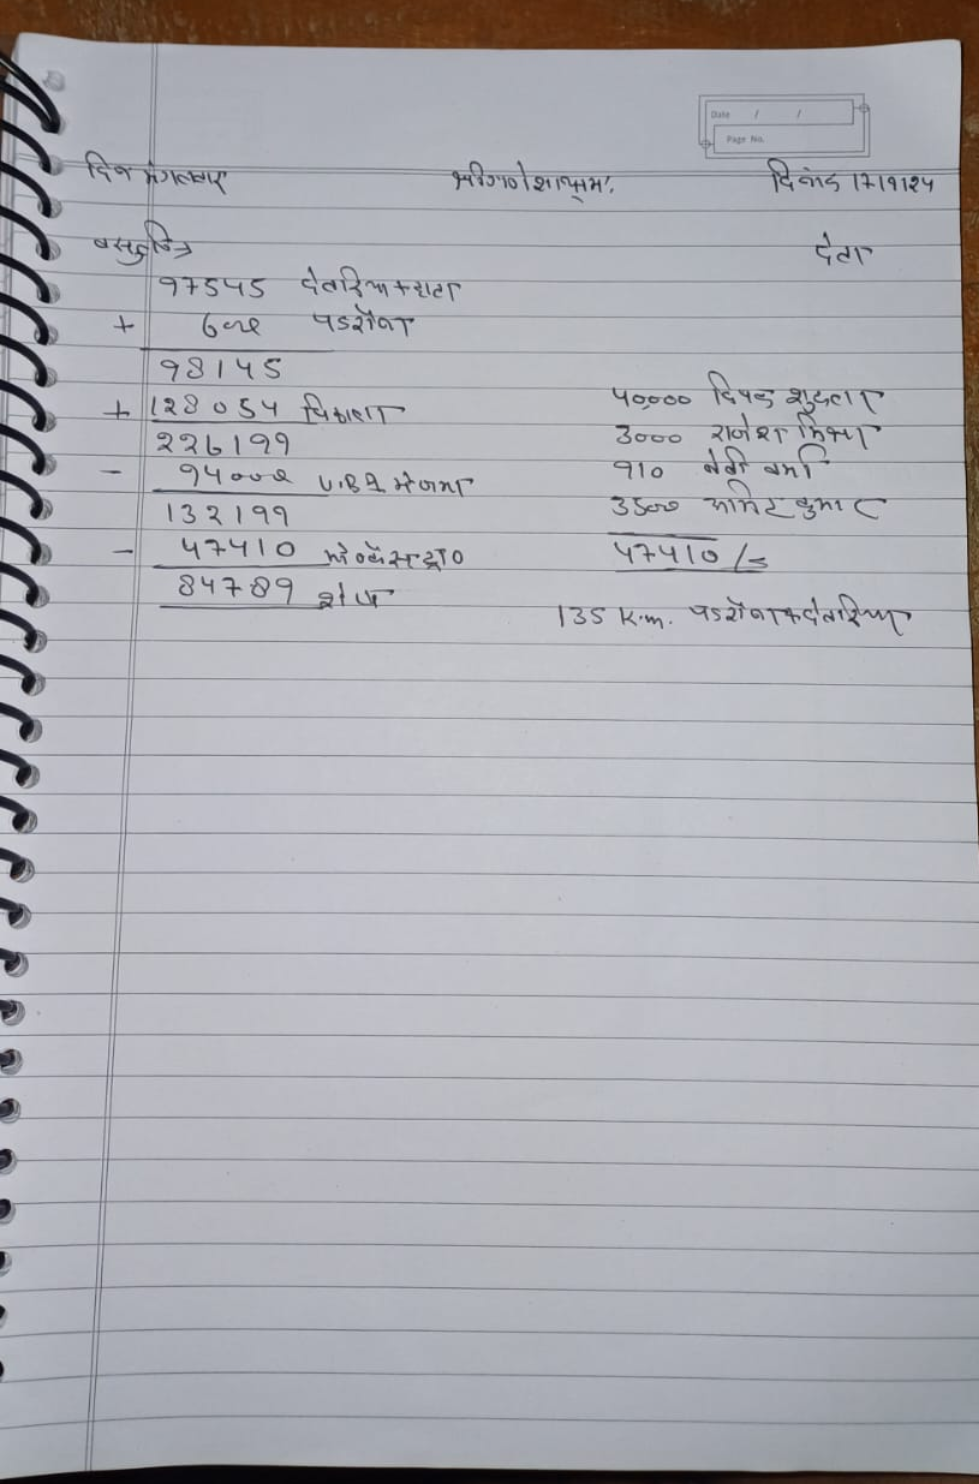 Date / /
Page No.
दिन मंगलवार श्री गणेशाय नमः दिनांक 17/9/24
वसुल देता
97545 देवरिया + हाटा
+ 600 पडरौना
98145
+ 128054 निकाला 40,000 दिपक शुक्ला
226199 3000 राजेश मिश्रा
- 94000 U.B.I भेजना 910 बेबी वर्मा
132199 3500 अमित कुमार
- 47410 47410/=
84789 शेष
135 K.m. पडरौना + देवरिया